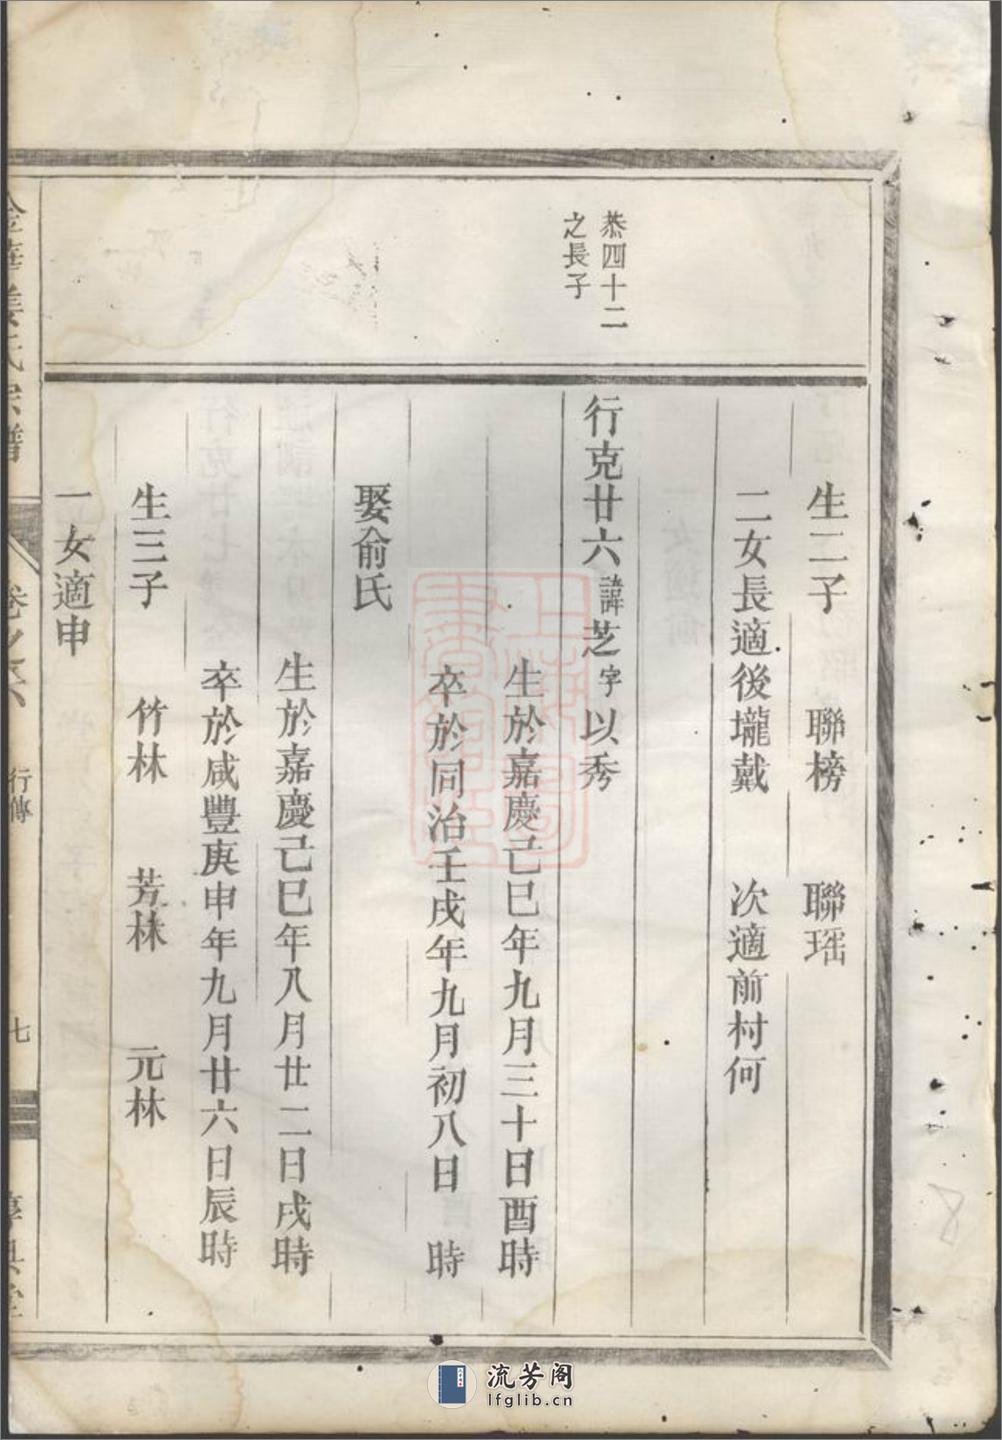 生二子 聯榜 聯瑶
二女長適後壠戴 次適前村何
恭四十二
之長子
行克廿六諱芝字以秀
生於嘉慶己巳年九月三十日酉時
卒於同治壬戌年九月初八日 時
娶俞氏
生於嘉慶己巳年八月廿二日戌時
卒於咸豐庚申年九月廿六日辰時
生三子 竹林 芳林 元林
一女適申
金華姜氏宗譜 卷之六 行傳 七
8
流芳阁
lfglib.cn